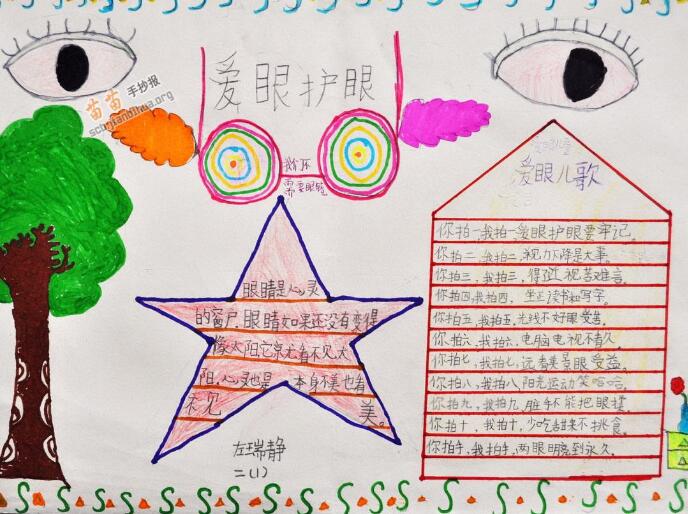 爱眼护眼
苗苗手抄报
schjiandihua.org
我们不
需要眼镜
爱眼儿歌
你拍一,我拍一,爱眼护眼要牢记。
你拍二,我拍二,视力下降是大事。
你拍三,我拍三,得了近视苦难言。
你拍四,我拍四,坐正读书和写字。
你拍五,我拍五,光线不好眼受害。
你拍六,我拍六,电脑电视不看久。
你拍七,我拍七,远看美景眼受益。
你拍八,我拍八,阳光运动笑哈哈。
你拍九,我拍九,脏手不能把眼揉。
你拍十,我拍十,少吃甜菜不挑食。
你拍手,我拍手,两眼明亮到永久。
眼睛是心灵
的窗户,眼睛如果还没有变得
像太阳它就看不见太
阳,心灵也是
本身不美也看
不见
美。
左瑞静
二(1)